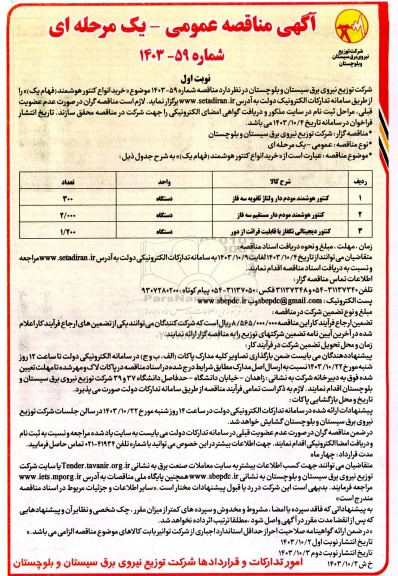 آگهی مناقصه عمومی - یک مرحله ای
شماره ۵۹-۱۴۰۳
شرکت توزیع
نیروی برق سیستان
و بلوچستان
نوبت اول
شرکت توزیع نیروی برق سیستان و بلوچستان در نظر دارد مناقصه شماره ۵۹-۱۴۰۳ موضوع «خرید انواع کنتور هوشمند (فهام یک)» را
از طریق سامانه تدارکات الکترونیک دولت به آدرس www.setadiran.ir برگزار نماید. لازم است مناقصه گران در صورت عدم عضویت
قبلی، مراحل ثبت نام در سایت مذکور و دریافت گواهی امضای الکترونیکی را جهت شرکت در مناقصه محقق سازند. تاریخ انتشار
فراخوان در سامانه تاریخ ۱۴۰۳/۱۰/۴ می باشد.
*مناقصه گزار: شرکت توزیع نیروی برق سیستان و بلوچستان
*نوع مناقصه: عمومی - یک مرحله ای
*موضوع مناقصه: عبارت است از «خرید انواع کنتور هوشمند (فهام یک)» به شرح جدول ذیل:
ردیف شرح کالا واحد تعداد
۱ کنتور هوشمند مودم دار ولتاژ ثانویه سه فاز دستگاه ۳۰۰
۲ کنتور هوشمند مودم دار مستقیم سه فاز دستگاه ۲/۰۰۰
۳ کنتور دیجیتالی تکفاز با قابلیت قرائت از دور دستگاه ۱/۲۰۰
زمان، مهلت، مبلغ و نحوه دریافت اسناد مناقصه:
متقاضیان می توانند از تاریخ ۱۴۰۳/۱۰/۴ لغایت ۱۴۰۳/۱۰/۹ به سامانه تدارکات الکترونیکی دولت به آدرس www.setadiran.ir مراجعه
و نسبت به دریافت اسناد مناقصه اقدام نمایند.
اطلاعات تماس مناقصه گزار:
تلفن ۳۱۱۳۷۳۴۰-۰۵۴ و ۳۱۱۳۷۳۴۸ فکس: ۳۱۱۳۷۰۵۰-۰۵۴ پیام کوتاه:
پست الکترونیک: sbepdc@gmail.com وب www.sbepdc.ir
مبلغ و نوع تضمین شرکت در مناقصه:
تضمین ارجاع فرآیند کار این مناقصه ۸/۵۶۵/۰۰۰/۰۰۰ ریال است که شرکت کنندگان می توانند یکی از تضمین های ارجاع فرآیند کار اعلام
شده در آخرین آیین نامه تضمین شرکتهای توزیع را به مناقصه گزار ارائه نمایند.
زمان و محل تحویل تضمین شرکت در فرآیند کار:
پیشنهاد دهندگان می بایست ضمن بارگذاری تصاویر کلیه مدارک پاکات (الف، ب و ج) در سامانه الکترونیکی دولت تا ساعت ۱۲ روز
شنبه مورخ ۱۴۰۳/۱۰/۲۲ نسبت به ارسال اصل مدارک مطابق شرایط درج شده در اسناد مناقصه در پاکات لاک و مهر شده تا مهلت تعیین
شده فوق به دبیرخانه شرکت به نشانی: زاهدان - خیابان دانشگاه - حدفاصل دانشگاه ۳۷ و ۳۹ شرکت توزیع نیروی برق سیستان و
بلوچستان اقدام نمایند. لازم به ذکر است تمامی فرآیند مناقصه از طریق سامانه تدارکات دولت صورت می پذیرد.
تاریخ و محل بازگشایی پاکات:
پیشنهادات ارائه شده در سامانه تدارکات الکترونیکی دولت در ساعت ۱۴ روز شنبه مورخ ۱۴۰۳/۱۰/۲۲ در سالن جلسات شرکت توزیع
نیروی برق سیستان و بلوچستان گشایش خواهد شد.
در ضمن مناقصه گران در صورت عدم عضویت قبلی در سامانه تدارکات دولت می بایست به سایت یاد شده مراجعه و نسبت به ثبت نام
و دریافت امضا الکترونیکی اقدام نمایند. جهت اطلاعات بیشتر در این خصوص می توانید با شماره تلفن ۴۱۹۳۴-۰۲۱ تماس حاصل فرمایید.
مدت قرارداد: چهار ماه
متقاضیان می توانند جهت کسب اطلاعات بیشتر به سایت معاملات صنعت برق به نشانی Tender.tavanir.org.ir یا سایت شرکت
توزیع نیروی برق سیستان و بلوچستان به نشانی www.sbepdc.ir همچنین پایگاه ملی مناقصات به آدرس www.iets.mporg.ir
مراجعه فرمایند. بدیهی است این شرکت در رد یا قبول پیشنهادات مختار است. «سایر اطلاعات و جزئیات مربوط در اسناد مناقصه
مندرج است»
به پیشنهاداتی که فاقد سپرده یا امضا، مشروط و مخدوش و سپرده های کمتر از میزان مقرر، چک شخصی و نظایر آن و پیشنهادهایی
که پس از انقضا مدت مقرر در آگهی واصل شود، «مطلقا ترتیب اثر داده نخواهد شد.
«در ضمن ارائه گواهینامه صلاحیت احراز حداقل استاندارد اجباری از شرکت توانیر بابت کالاهای موضوع مناقصه الزامی می باشد.»
تاریخ انتشار نوبت اول ۱۴۰۳/۱۰/۲
تاریخ انتشار نوبت دوم ۱۴۰۳/۱۰/۳
خ ش ۱۴۰۳/۱۰/۲
امور تدارکات و قراردادها شرکت توزیع نیروی برق سیستان و بلوچستان